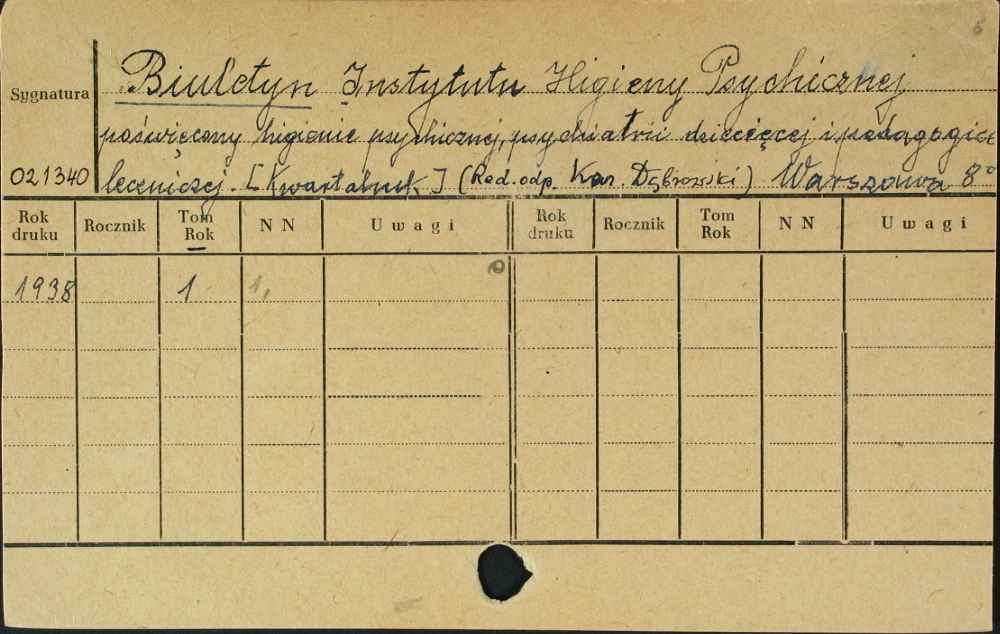 6
Biuletyn Instytutu Higieny Psychicznej
Sygnatura
poświęcony higienie psychicznej, psychiatrii dziecięcej i pedagogice
021340 leczniczej. [Kwartalnik] (Red. odp. Kaz. Dąbrowski) Warszawa 8°
Rok druku Rocznik Tom Rok NN Uwagi Rok druku Rocznik Tom Rok NN Uwagi
1938 1 1,